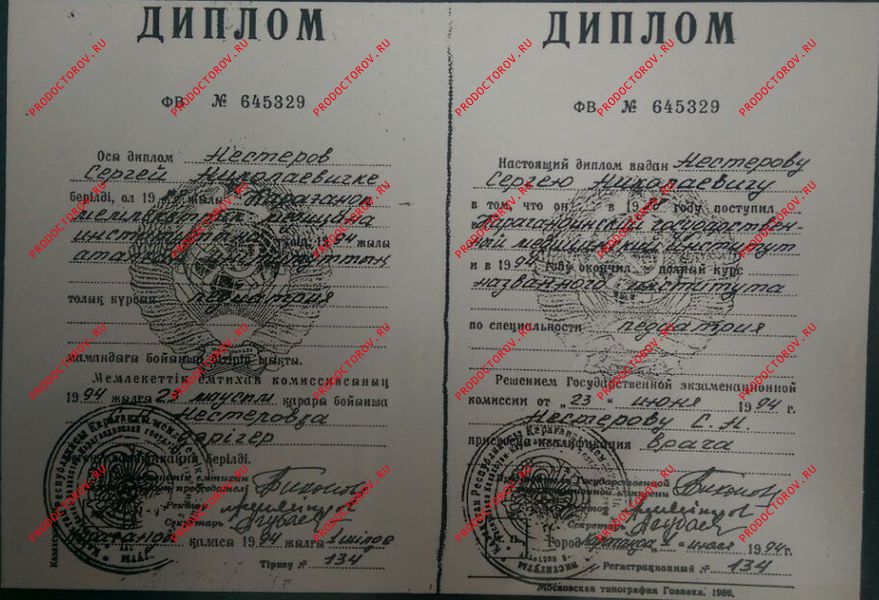 ДИПЛОМ
ФВ № 645329
Осы диплом Нестеров
Сергей Николаевичке
берілді, ол 19 жылы Караганды
институтына 1994 жылы
аталған институттың
толық курсын педиатрия
мамандағы бойынша бітіріп шықты.
Мемлекеттік емтихан комиссиясының
1994 жылғы 23 маусым қарары бойынша
С.Н. Нестеровқа
дәрігер
квалификаций берілді.
Ректор
Секретарь
қаласы 1994 жылғы
Тіркеу № 134
ДИПЛОМ
ФВ № 645329
Настоящий диплом выдан Нестерову
Сергею Николаевичу
в том, что он в 19 году поступил
в Карагандинский государствен-
ный медицинский институт
и в 1994 году окончил полный курс
названного института
по специальности педиатрия
Решением Государственной экзаменационной
комиссии от „23“ июня 1994 г.
Нестерову С.Н.
присвоена квалификация врача
Государственной
Секретарь
Город Караганда июля 1994 г.
Регистрационный № 134
Московская типография Гознака. 1989.
PRODOCTOROV.RU